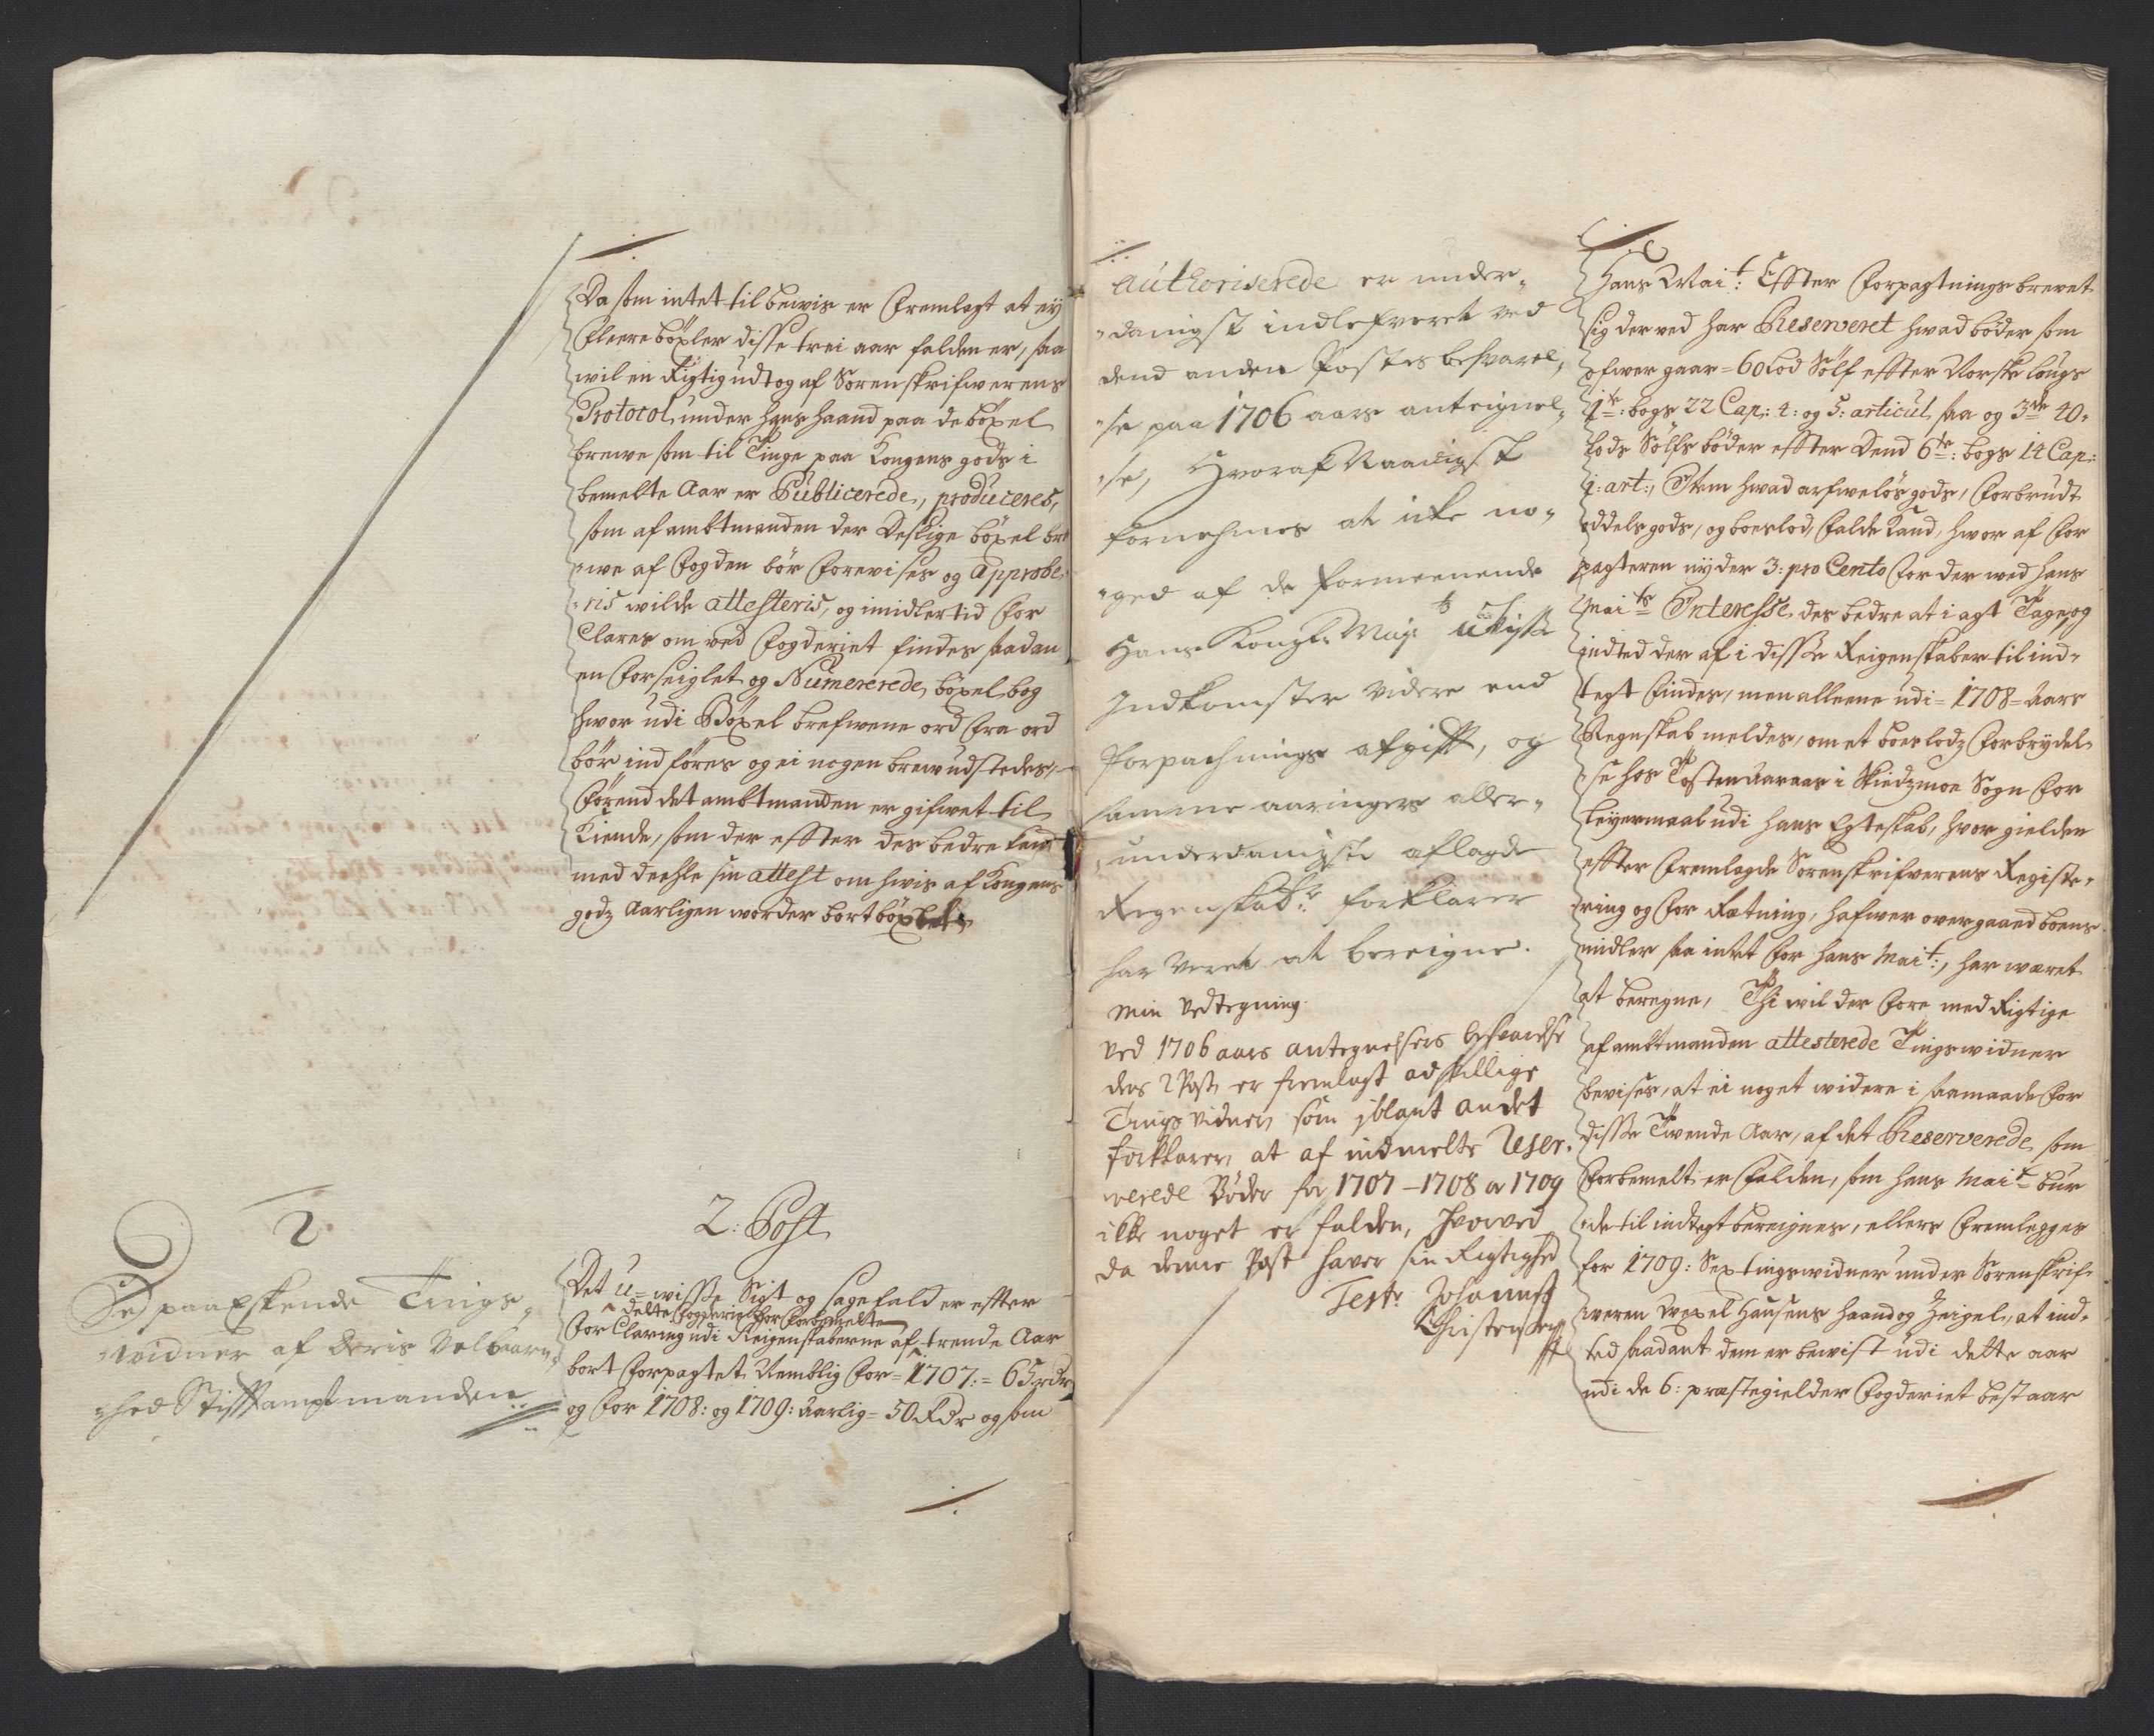 Da som intet til bewis er Fremlagt at ey
Fleere böxler disse trei aar falden er, saa
wil en Rigtig udtog af Sorenskrifwerens
Protocol, under hans haand paa de böxel
brewe som til Tinge paa Kongens gods i
bemelte Aar er Publicerede, produceres,
som af ambtmanden der deslige böxel bre
we af Fogden bör Forevises og Approbe-
ris wilde attesteris, og imidlertid For
Clares om ved Fogderiet findes saadan
en Forseiglet og Numererede böxel bog
hwor udi Böxel brefwene ord Fra ord
bör indföres og ei nogen brew udstedes,
Förend det ambtmanden er gifwet til
Kiende, som der effter des bedre kand
med deehle sin attest om hwis af Kongens
godz Aarligen worder bortböxelt
2
Ved paaEskende Tings
widner af deris Velbaarn
hed Stifftamptmanden
2: Post
Det u-wisse Sigt og sagefald er effter
delte Fogderie For Forbemelte
For Claring udi Reigenskaberne af trende Aar
bort Forpagtet Nemblig For 1707: 65 rdr
og For 1708: og 1709: Aarlig 50 Rdr og som
authoriserede er under-
danigst indlefveret ved
dend anden Postes besvarel-
se paa 1706 aars anteignel-
se, Hvoraf Naadigst
fornehmes at icke no-
ged af de formeenende
Hans Kongl Mayt uvisse
Indkomster videre end
forpachnings afgifft, og
samme aaringers aller-
underdanigste aflagde
Regenskaber forklarer
har veret at bereigne.
Min Vedtegning
Ved 1706 aars antegnelsers besvarelse
dens 2 Post er fremlagt adskillige
Tings vidner som jblant andet
forklarer at af indmelte Reser-
verede Böder for 1707 - 1708 oc 1709
ikke noget er falden, hvorved
da denne Post haver sin Rigtighed
Test Johannes
Christensen
Hans Mait: Effter Forpagtnings brevet
sig derved har Reserveret hwad böder som
ofwer gaar 60 Lod Sölf effter Norske lougs
1te: bogs 22 Cap: 4: og 5: articul, saa og 3de 40
lods Sölfs böder effter dend 6te: bogs 14 Cap:
1: art:, Item hwad arfwelös gods, Forbrudt
oddels gods, og boeslod, Falde Kand, hwor af For
pagteren nyder 3: pro Cento For der wed hans
Maits Interesse des bedre at i agt Tage, og
indted der af i disse Reigenskaber til ind-
tegt Findes, men alleene udi 1708 Aars
Regnskab meldes, om et boeslodz Forbrydel-
se hos Tosten Aaraas i Skiedzmoe Sogn For
leyermaal udi hans Egteskab, hvor gielden
effter Fremlagde Sorenskrifverens Registe-
ring og For Rætning, hafwer overgaaed boens
midler saa intet For hans Mait:, har wæret
at beregne, Thi wil der Fore med Rigtige
af ambtmanden attesterede Tingswidner
bevises, at ei noget widere i saamaade For
disse Twende Aar, af det Reserverede, som
Forbemelt er Falden, som hans Mait bur
de til indtegt bereignes, ellers Fremlegges
for 1709: Sex tingswidner under Sorenskrif-
weren Wexel Hansens haand og Zeigel, at ind-
ted saadant dem er bewist udi dette aar
udi de 6: præstegielder Fogderiet bestaar